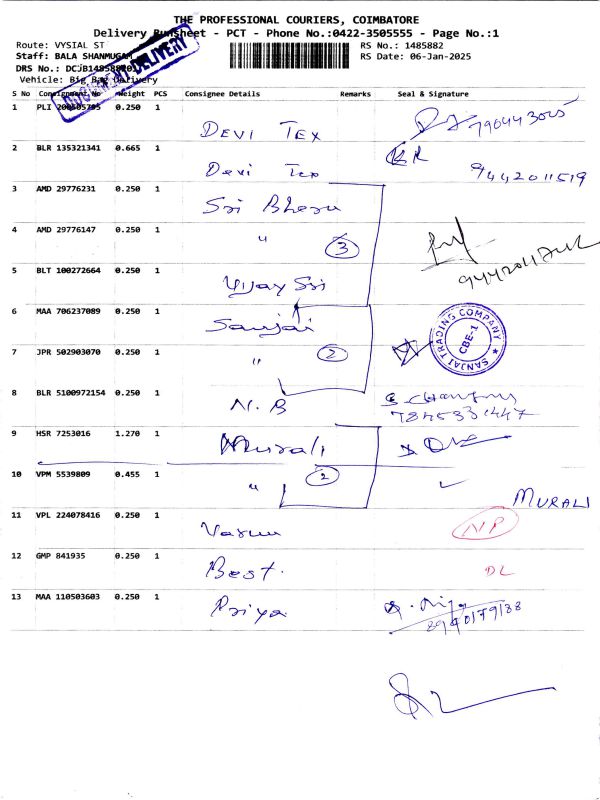 THE PROFESSIONAL COURIERS, COIMBATORE
Delivery Runsheet - PCT - Phone No.:0422-3505555 - Page No.:1
Route: VYSIAL ST
RS No.: 1485882
Staff: BALA SHANMUGAM
RS Date: 06-Jan-2025
DRS No.:
Vehicle: Big Bag Delivery
DOCUMENT DELIVERY
S No Consignment No Weight PCS Consignee Details Remarks Seal & Signature
1 PLI 0.250 1 DEVI TEX 790443025
2 BLR 135321341 0.665 1 Devi Tex KR 9442011519
3 AMD 29776231 0.250 1 Sri
4 AMD 29776147 0.250 1 " 3
5 BLT 100272664 0.250 1 Vijay Sri
6 MAA 706237089 0.250 1 Sanjai
SANJAI TRADING COMPANY CBE-1
7 JPR 502903070 0.250 1 " 2
8 BLR 5100972154 0.250 1 N.B 7845331447
9 HSR 7253016 1.270 1 Murali
10 VPM 5539809 0.455 1 " 2 MURALI
11 VPL 224078416 0.250 1 NP
12 GMP 841935 0.250 1 Best. DL
13 MAA 110503603 0.250 1 Priya